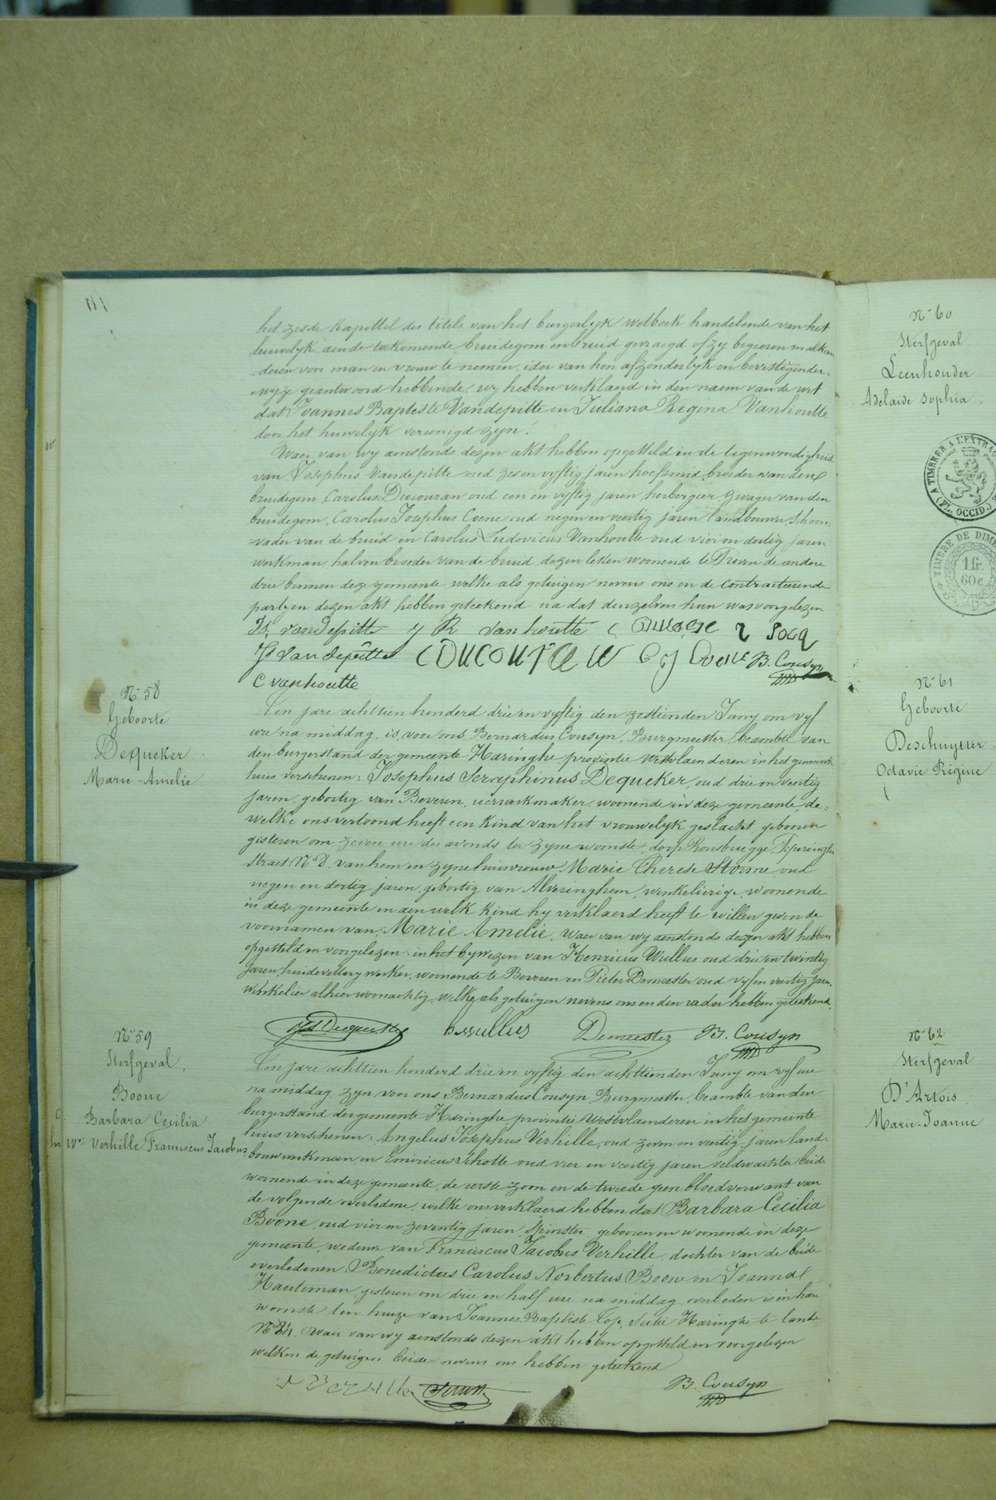 het zesde kapittel des titels van het burgerlyk wetboek handelende van het
huwelyk aen de toekomende bruidegom en bruid gevraegd of zy begeeren malkan
deren voor man en vrouw te nemen, ider van hen afzonderlyk en bevestigender-
wyze geantwoord hebbende, wy hebben verklaerd in den naem van de wet
dat Joannes Baptiste Vandepitte en Juliana Regina Vanhoutte
door het huwelyk vereenigd zyn.
Waer van wy aenstonds dezen akt hebben opgesteld in de tegenwoordigheid
van Josephus Vandepitte oud zes en vyftig jaren hoefsmid, broeder van den
bruidegom, Carolus Ducouran oud een en vyftig jaren herbergier zwager van den
bruidegom, Carolus Josephus Coene oud negen en veertig jaren landbouwer, schoon
vader van de bruid en Carolus Ludovicus Vanhoutte oud vier en dertig jaren
werkman halven broeder van de bruid dezen lesten woonende te de andere
drie binnen deze gemeente welke als getuigen nevens ons en de contracteerende
partyen dezen akt hebben geteekend na dat denzelven hun was voorgelezen
Vandepitte J R vanhoutte
Js Vandepitte C J Coene B. Cousyn
C vanhoutte
N° 58
Geboorte
Dequeker
Marie-Amelie
Ten jare achttien honderd drie en vyftig den zestienden Juny om vyf
ure na middag, is voor ons Bernardus Cousyn, Burgmeester, beambte van
den burgerstand der gemeente Haringhe provintie Westvlaenderen in het gemeente
huis verschenen: Josephus Seraphinus Dequeker, oud drie en veertig
jaren, geboortig van Beveren, uerwerkmaker, woonende in deze gemeente, de-
welke ons vertoond heeft een kind van het vrouwelyk geslacht geboren
gisteren om zeven ure des avonds ter zyne woonste, dorp Rousbrugge, Poperinghe
straet N° 2. van hem en zyne huisvrouw Marie Therese Hoorne oud
negen en dertig jaren, geboortig van Alveringhem, winkelierige woonende
in deze gemeente en aen welk kind hy verklaerd heeft te willen geven de
voornamen van Marie Amelie. Waer van wy aenstonds dezen akt hebben
opgesteld en voorgelezen in het bywezen van Henricus Wullus oud drie en twintig
jaren, huidevetters werker, woonende te Beveren en Pieter Demeester oud vyf en veertig jaren,
winkelier alhier woonachtig, welke als getuigen nevens ons en den vader hebben geteekend.
Js Dequeker h wullus Demeester B. Cousyn
N° 59
Sterfgeval
Boone
Barbara Cecilia
We Verhille Franciscus Jacobus
Ten jare achttien honderd drie en vyftig den achttienden Juny om vyf ure
na middag zyn voor ons Bernardus Cousyn Burgmeester, beambte van den
burgerstand der gemeente Haringhe provintie Westvlaenderen in het gemeente
huis verschenen: Angelus Josephus Verhille, oud zeven en veertig jaren land-
bouw werkman en Emericus Schotte oud vier en veertig jaren veldwachter beide
woonende in deze gemeente, de eerste zoon en de tweede geen bloedverwant van
de volgende overledene, welke ons verklaerd hebben dat Barbara Cecilia
Boone, oud vier en zeventig jaren, spinster, geboren en woonende in deze
gemeente, weduwe van Franciscus Jacobus Verhille, dochter van de beide
overledenen Benedictus Carolus Norbertus Boone en Joanna
Hauteman gisteren om drie en half ure na middag overleden is in haer
woonste ten huize van Joannes Baptiste Top, sectie Haringhe te lande
N° Waer van wy aenstonds dezen akt hebben opgesteld en voorgelezen
welken de getuigen beide nevens ons hebben geteekend
B. Cousyn
N° 60
Sterfgeval
Leenhouder
Adelaide Sophia
A TIMBRER A L'EXTRAO
(FL. OCCID.)
TIMBRE DE DIME
1 fr.
60 c
N° 61
Geboorte
Deschuytter
Octavie Régine
N° 62
Sterfgeval
D'Artois
Marie-Joanne